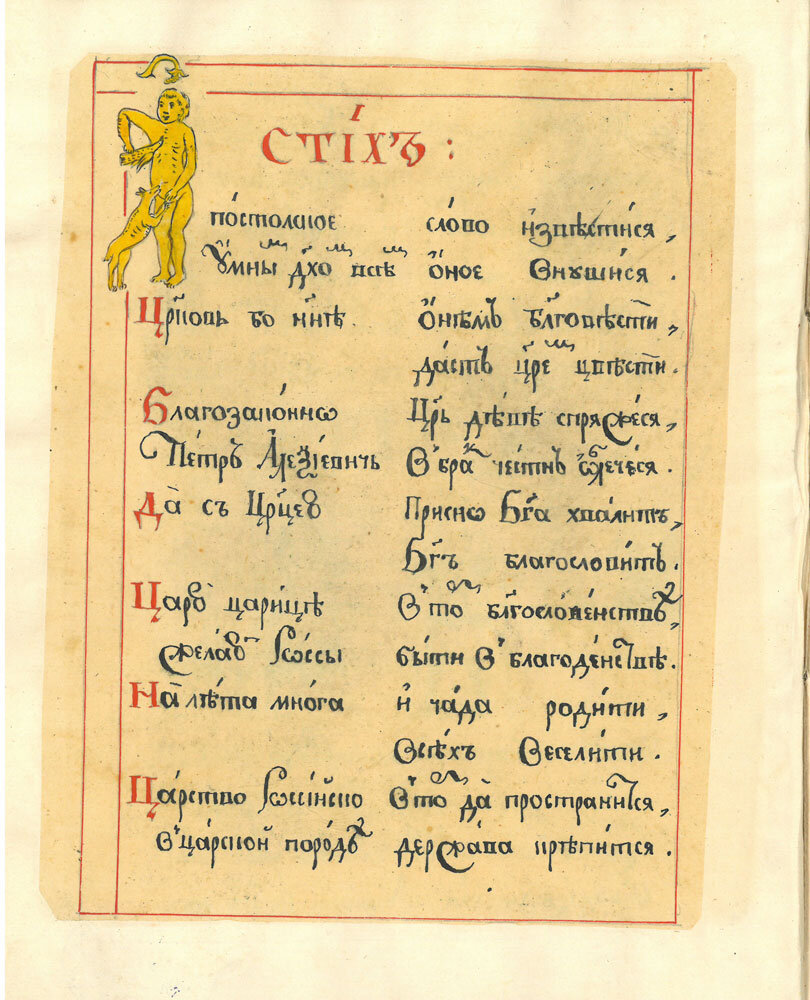 І
СТІХЪ :
постолское слово извѣстися,
Умны дхо всѣ оное внушися.
Црковь бо ннѣ онѣмъ блговѣсти,
дастъ цре цвѣсти.
Благозаконнѡ Црь дѣвѣ спряжеся,
Петръ Алеѯіевичь в бра честнъ
Да съ Црцею Приснѡ Бга хвалитъ,
Бгъ благословитъ.
Царю царицѣ в то блгословенствѣ,
желаю Рѡссы быти в благоденствѣ.
На лѣта многа и чада родити,
всѣхъ веселити.
Царство Рѡссійско в то да пространится,
в царской породѣ держава крѣпится.